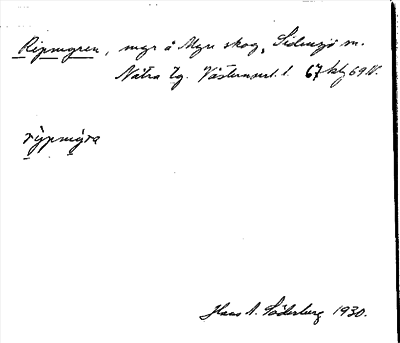 Ripmyren, myr å Myre skog, Sidensjö sn.
Nätra tg. Västernorrl. l. 67 kbl 69 N.
rỳpmỳra
Hans A. Söderberg 1930.